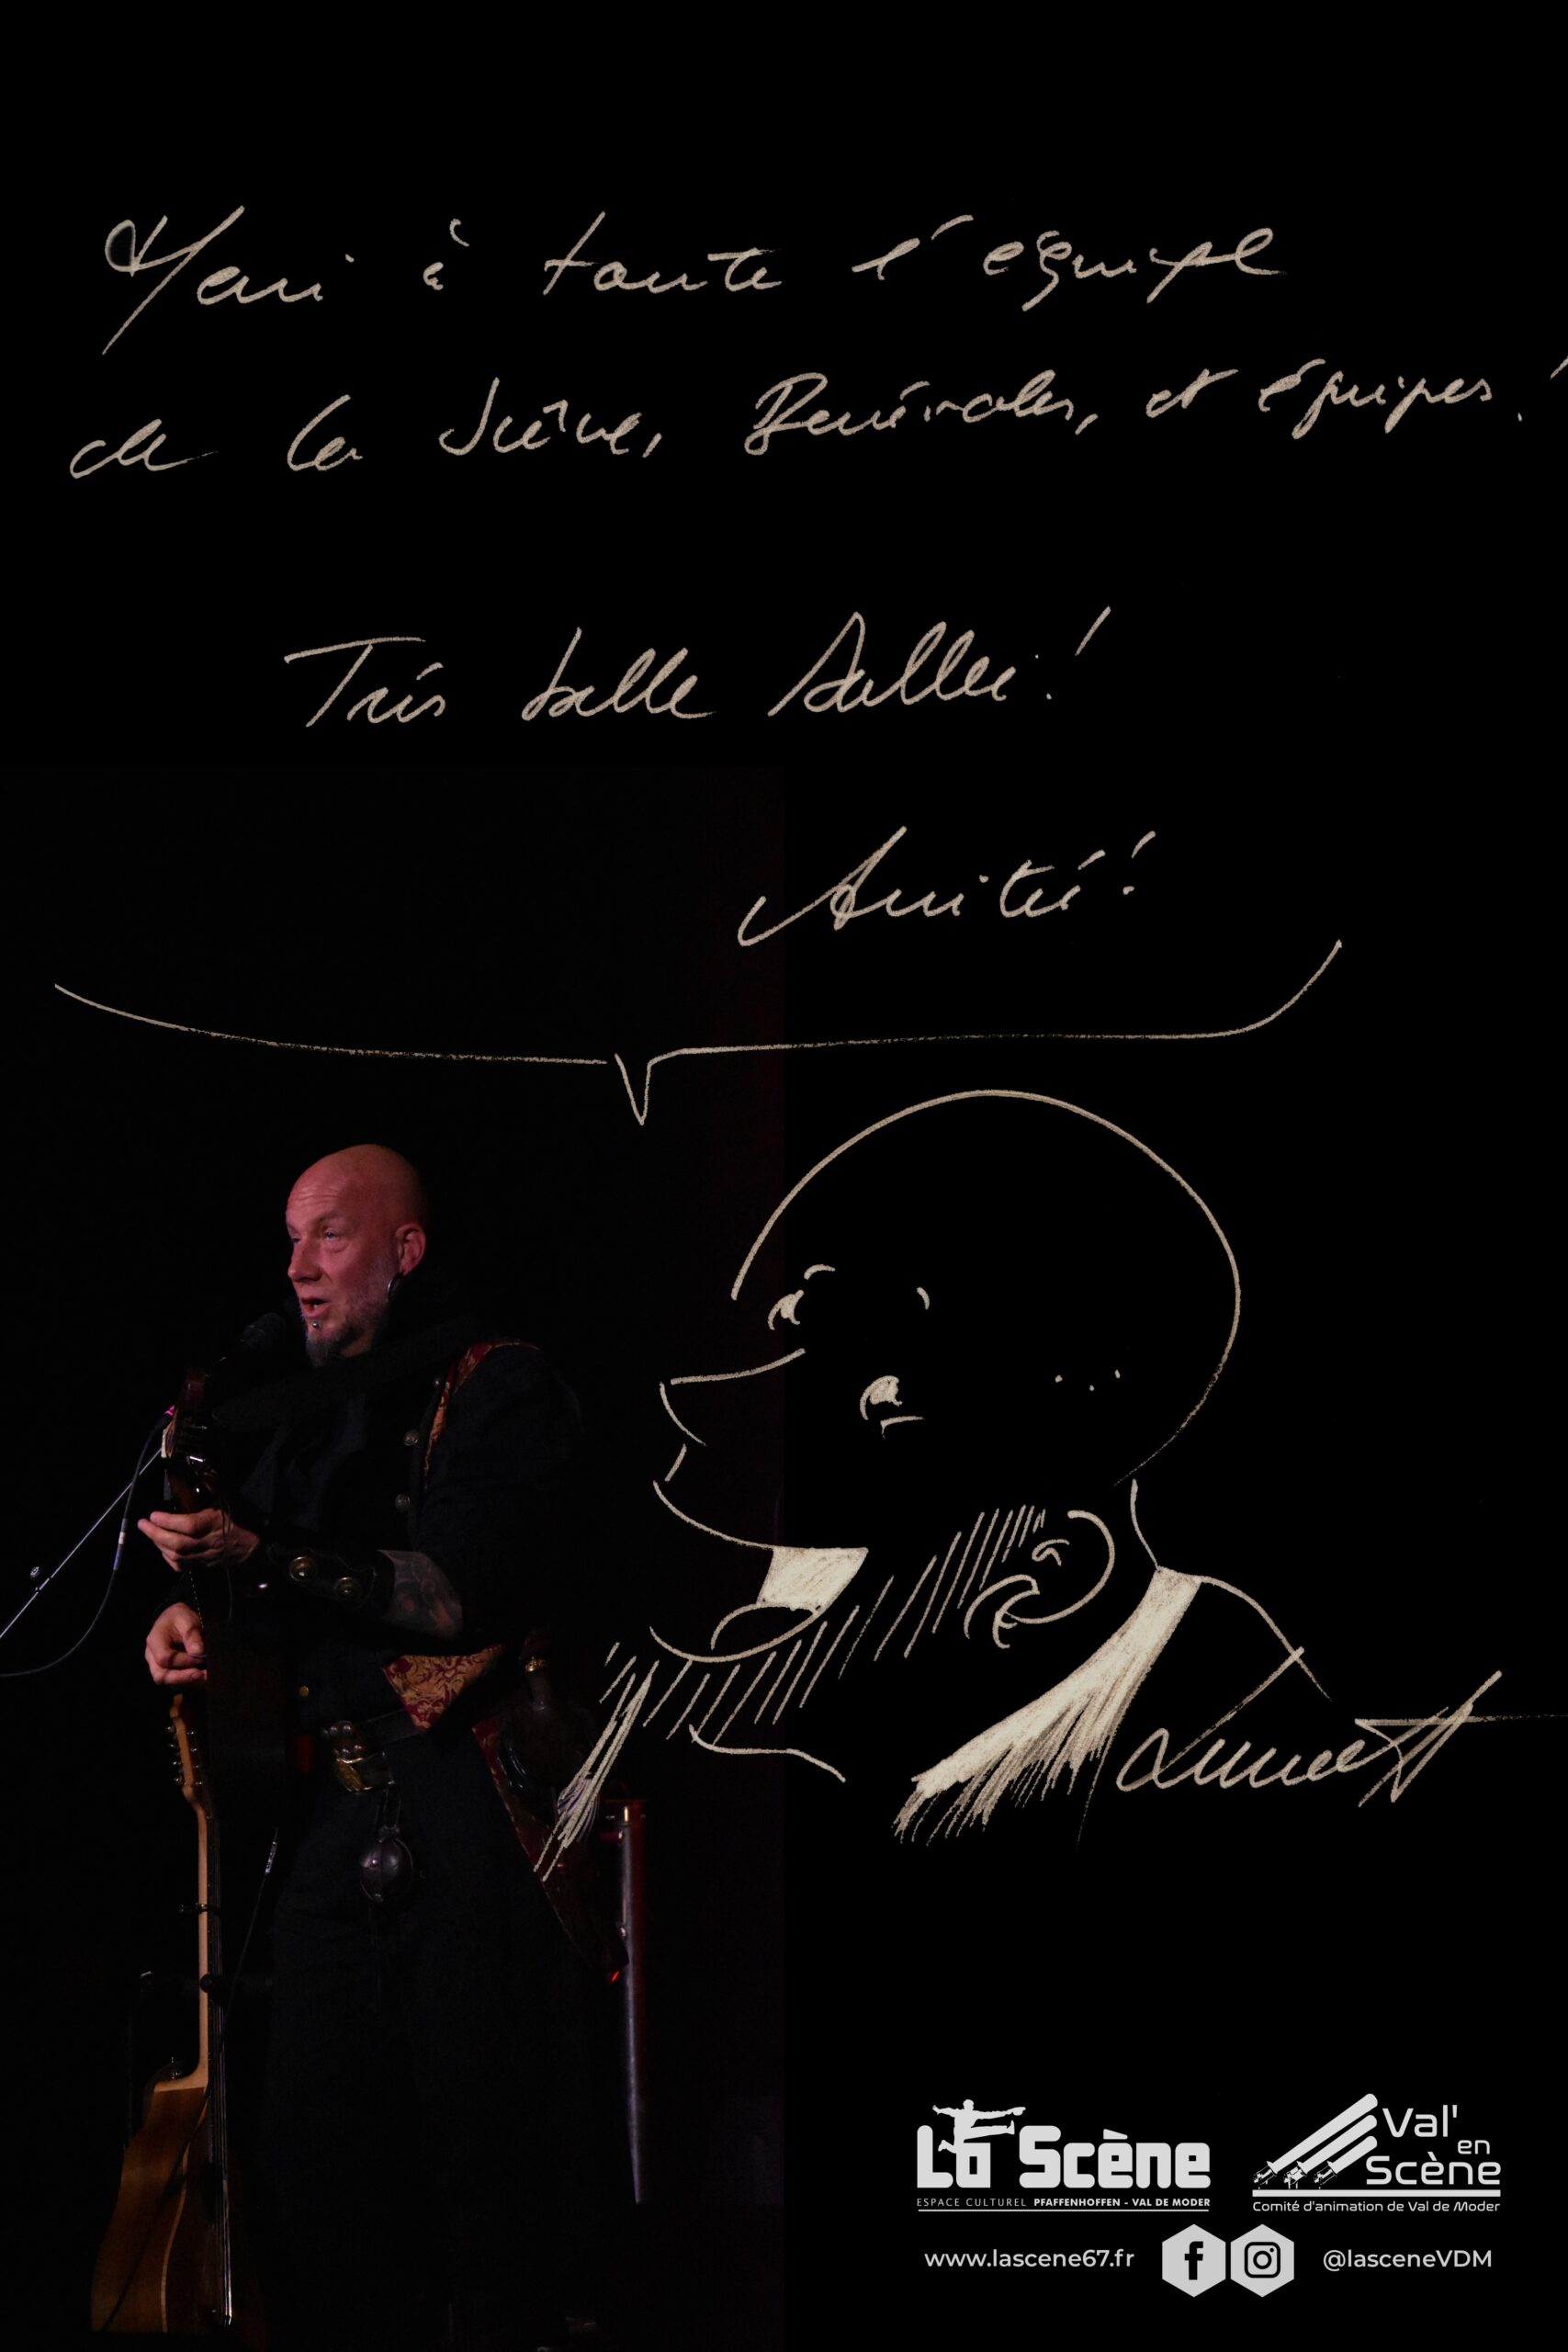 Merci à toute l'équipe
de la Scène, Bénévoles, et équipes !
Très belle Salle !
Amitié !
La Scène
ESPACE CULTUREL PFAFFENHOFFEN - VAL DE MODER
Val'
en
Scène
Comité d'animation de Val de Moder
www.lascene67.fr
@lasceneVDM